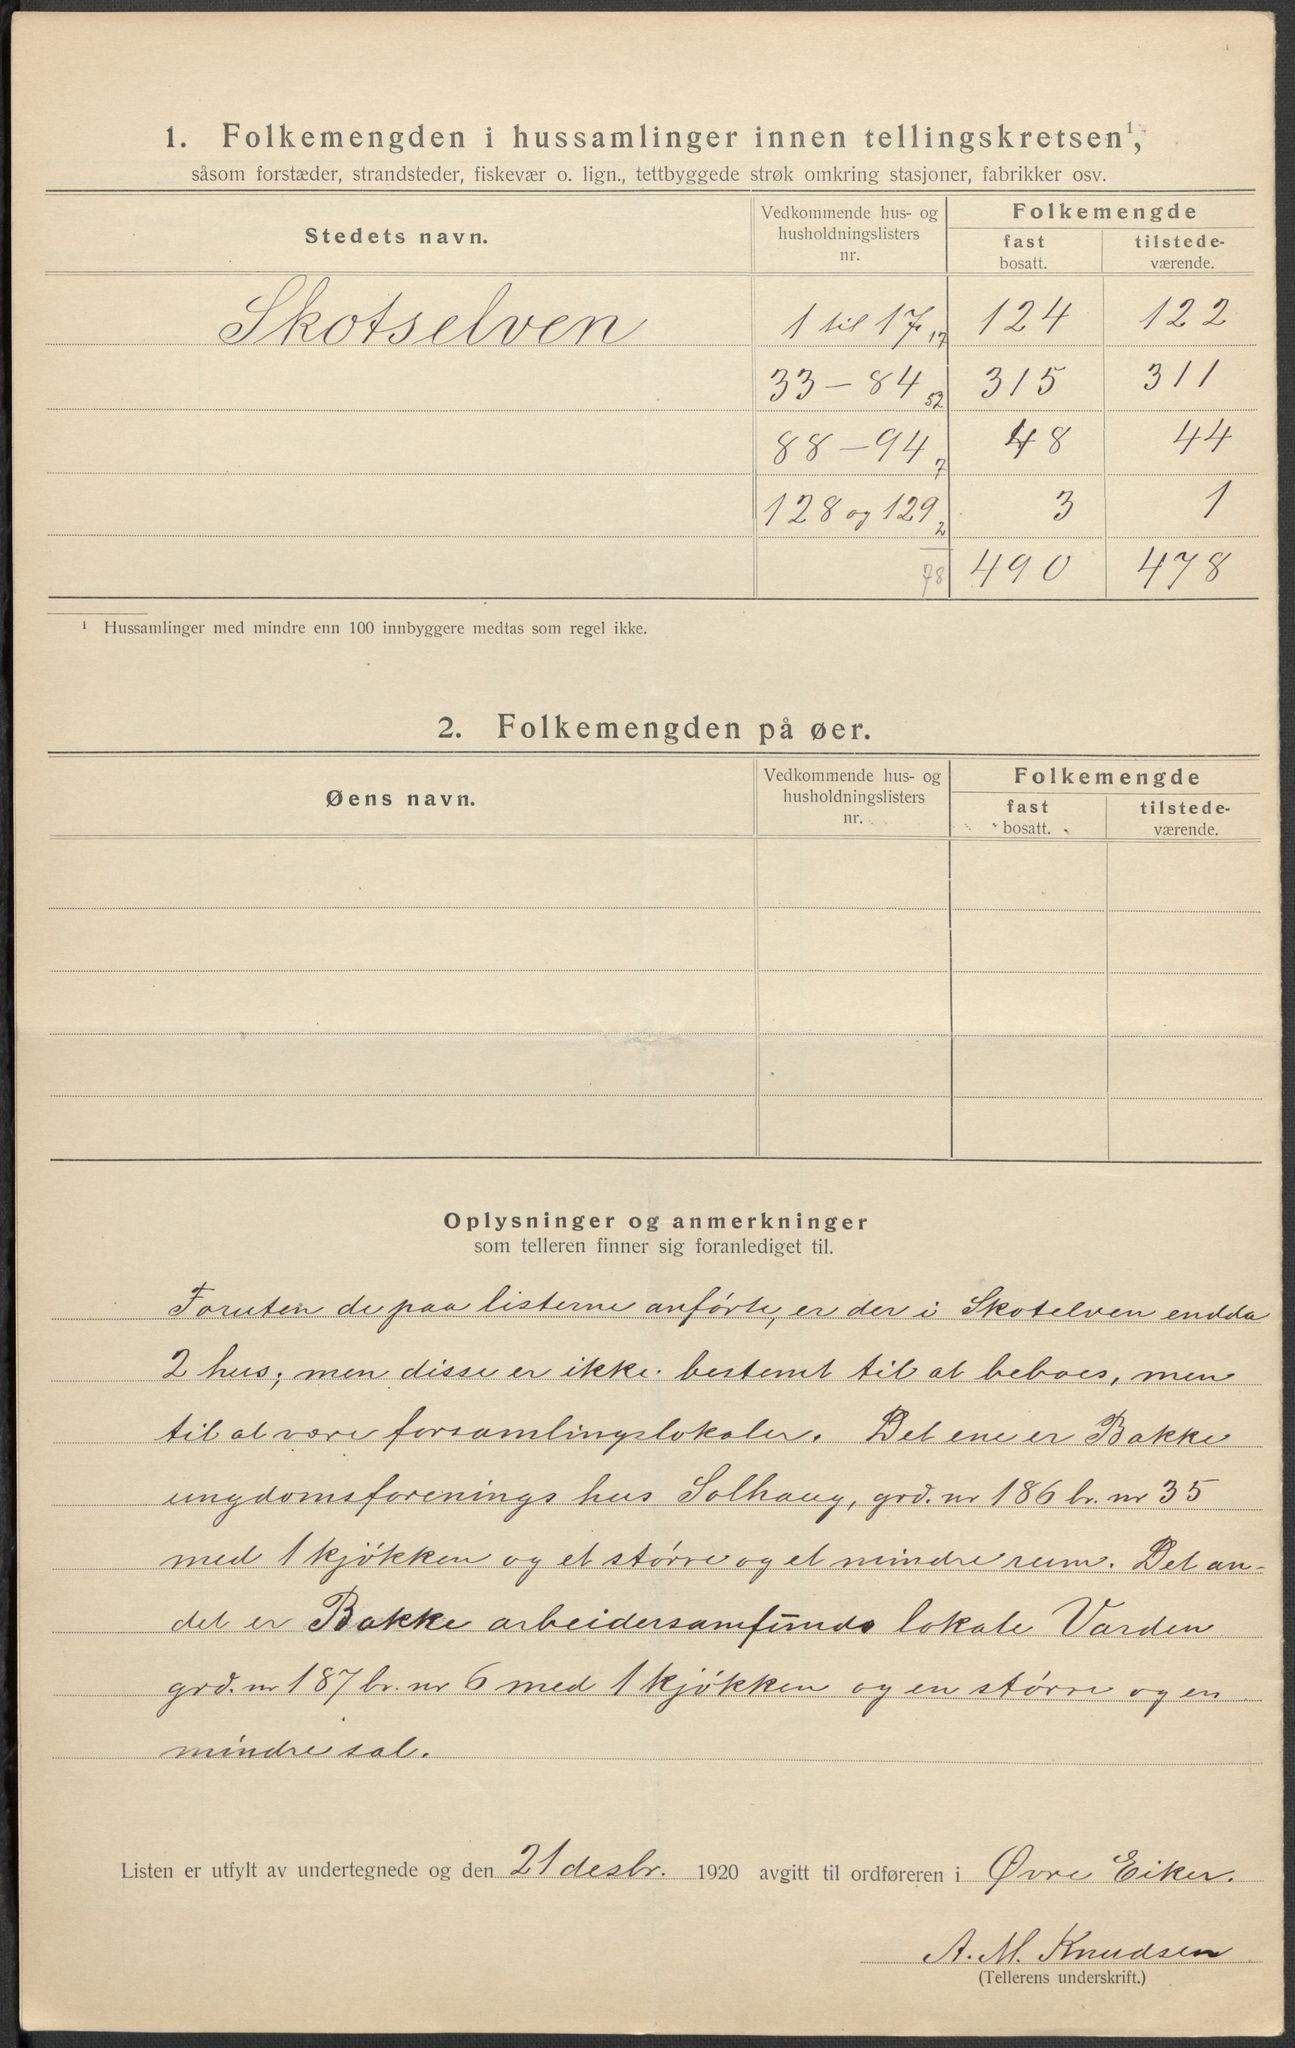 1. Folkemengden i hussamlinger innen tellingskretsen¹,
såsom forstæder, strandsteder, fiskevær o. lign., tettbyggede strøk omkring stasjoner, fabrikker osv.
Stedets navn. Vedkommende hus- og husholdningslisters nr. Folkemengde
fast bosatt. tilstede-værende.
Skotselven 1 til 17 17 124 122
33 – 84 52 315 311
88 – 94 7 48 44
128 og 129 2 3 1
78 490 478
¹ Hussamlinger med mindre enn 100 innbyggere medtas som regel ikke.
2. Folkemengden på øer.
Øens navn. Vedkommende hus- og husholdningslisters nr. Folkemengde
fast bosatt. tilstede-værende.
Oplysninger og anmerkninger
som telleren finner sig foranlediget til.
Foruten de paa listerne anførte, er der i Skotelven endda
2 hus; men disse er ikke bestemt til at beboes, men
til at være forsamlingslokaler. Det ene er Bakke
ungdomsforenings hus Solhaug, grd. nr 186 br. nr 35
med 1 kjøkken og et større og et mindre rum. Det an-
det er Bakke arbeidersamfunds lokale Varden
grd. nr 187 br. nr 6 med 1 kjøkken og en større og en
mindre sal.
Listen er utfylt av undertegnede og den 21 desbr. 1920 avgitt til ordføreren i Øvre Eiker.
A. M. Knudsen
(Tellerens underskrift.)